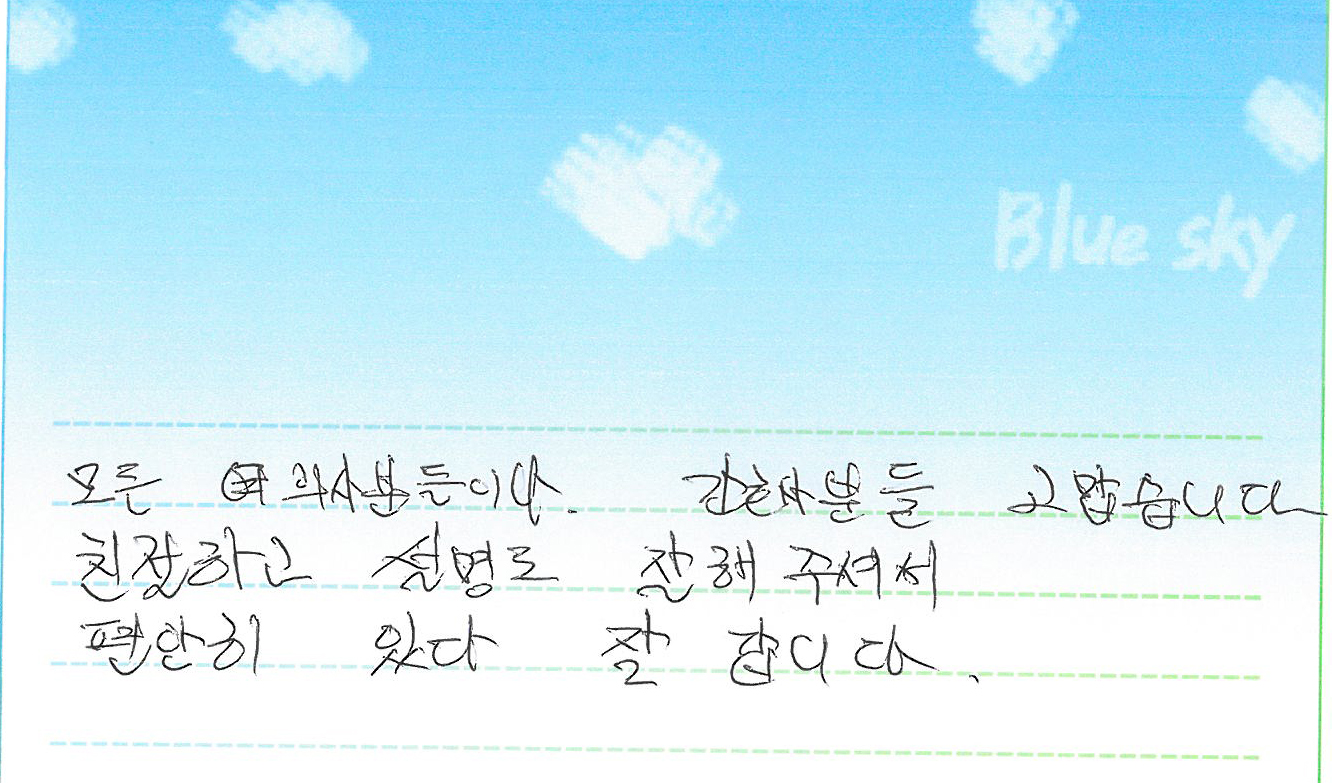 Blue sky
모든 의사분들이나. 간호사분들 고맙습니다
친절하고 설명도 잘해 주셔서
편안히 있다 잘 갑니다.